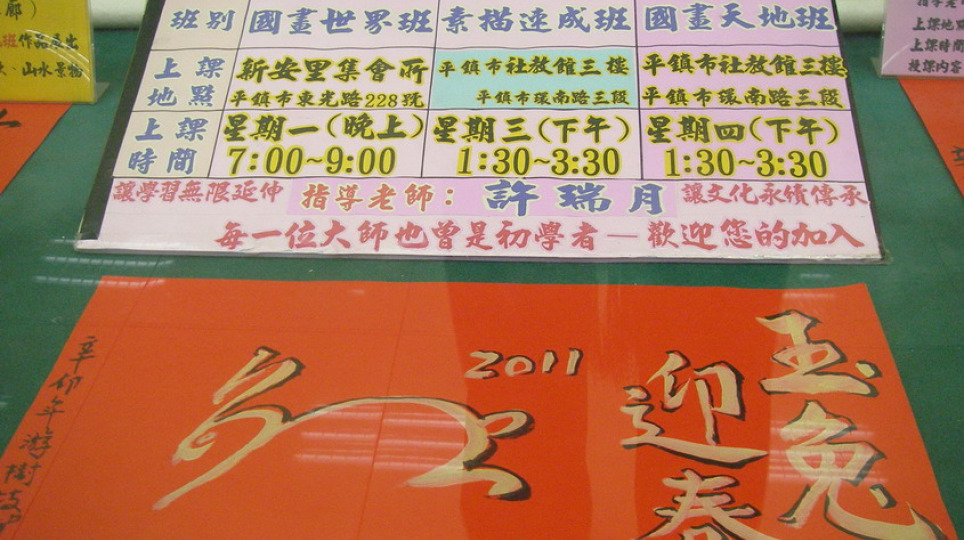 廊）
班作品展出
、山水景物
班別 國畫世界班 素描速成班 國畫天地班
上課地點 新安里集會所 平鎮市社教館三樓 平鎮市社教館三樓
平鎮市東光路228號 平鎮市環南路三段 平鎮市環南路三段
上課時間 星期一(晚上) 星期三(下午) 星期四(下午)
7:00~9:00 1:30~3:30 1:30~3:30
讓學習無限延伸 指導老師：許瑞月 讓文化永續傳承
每一位大師也曾是初學者—歡迎您的加入
上課地點
上課時間
授課內容
玉兔
迎春
2011
辛卯年游樹